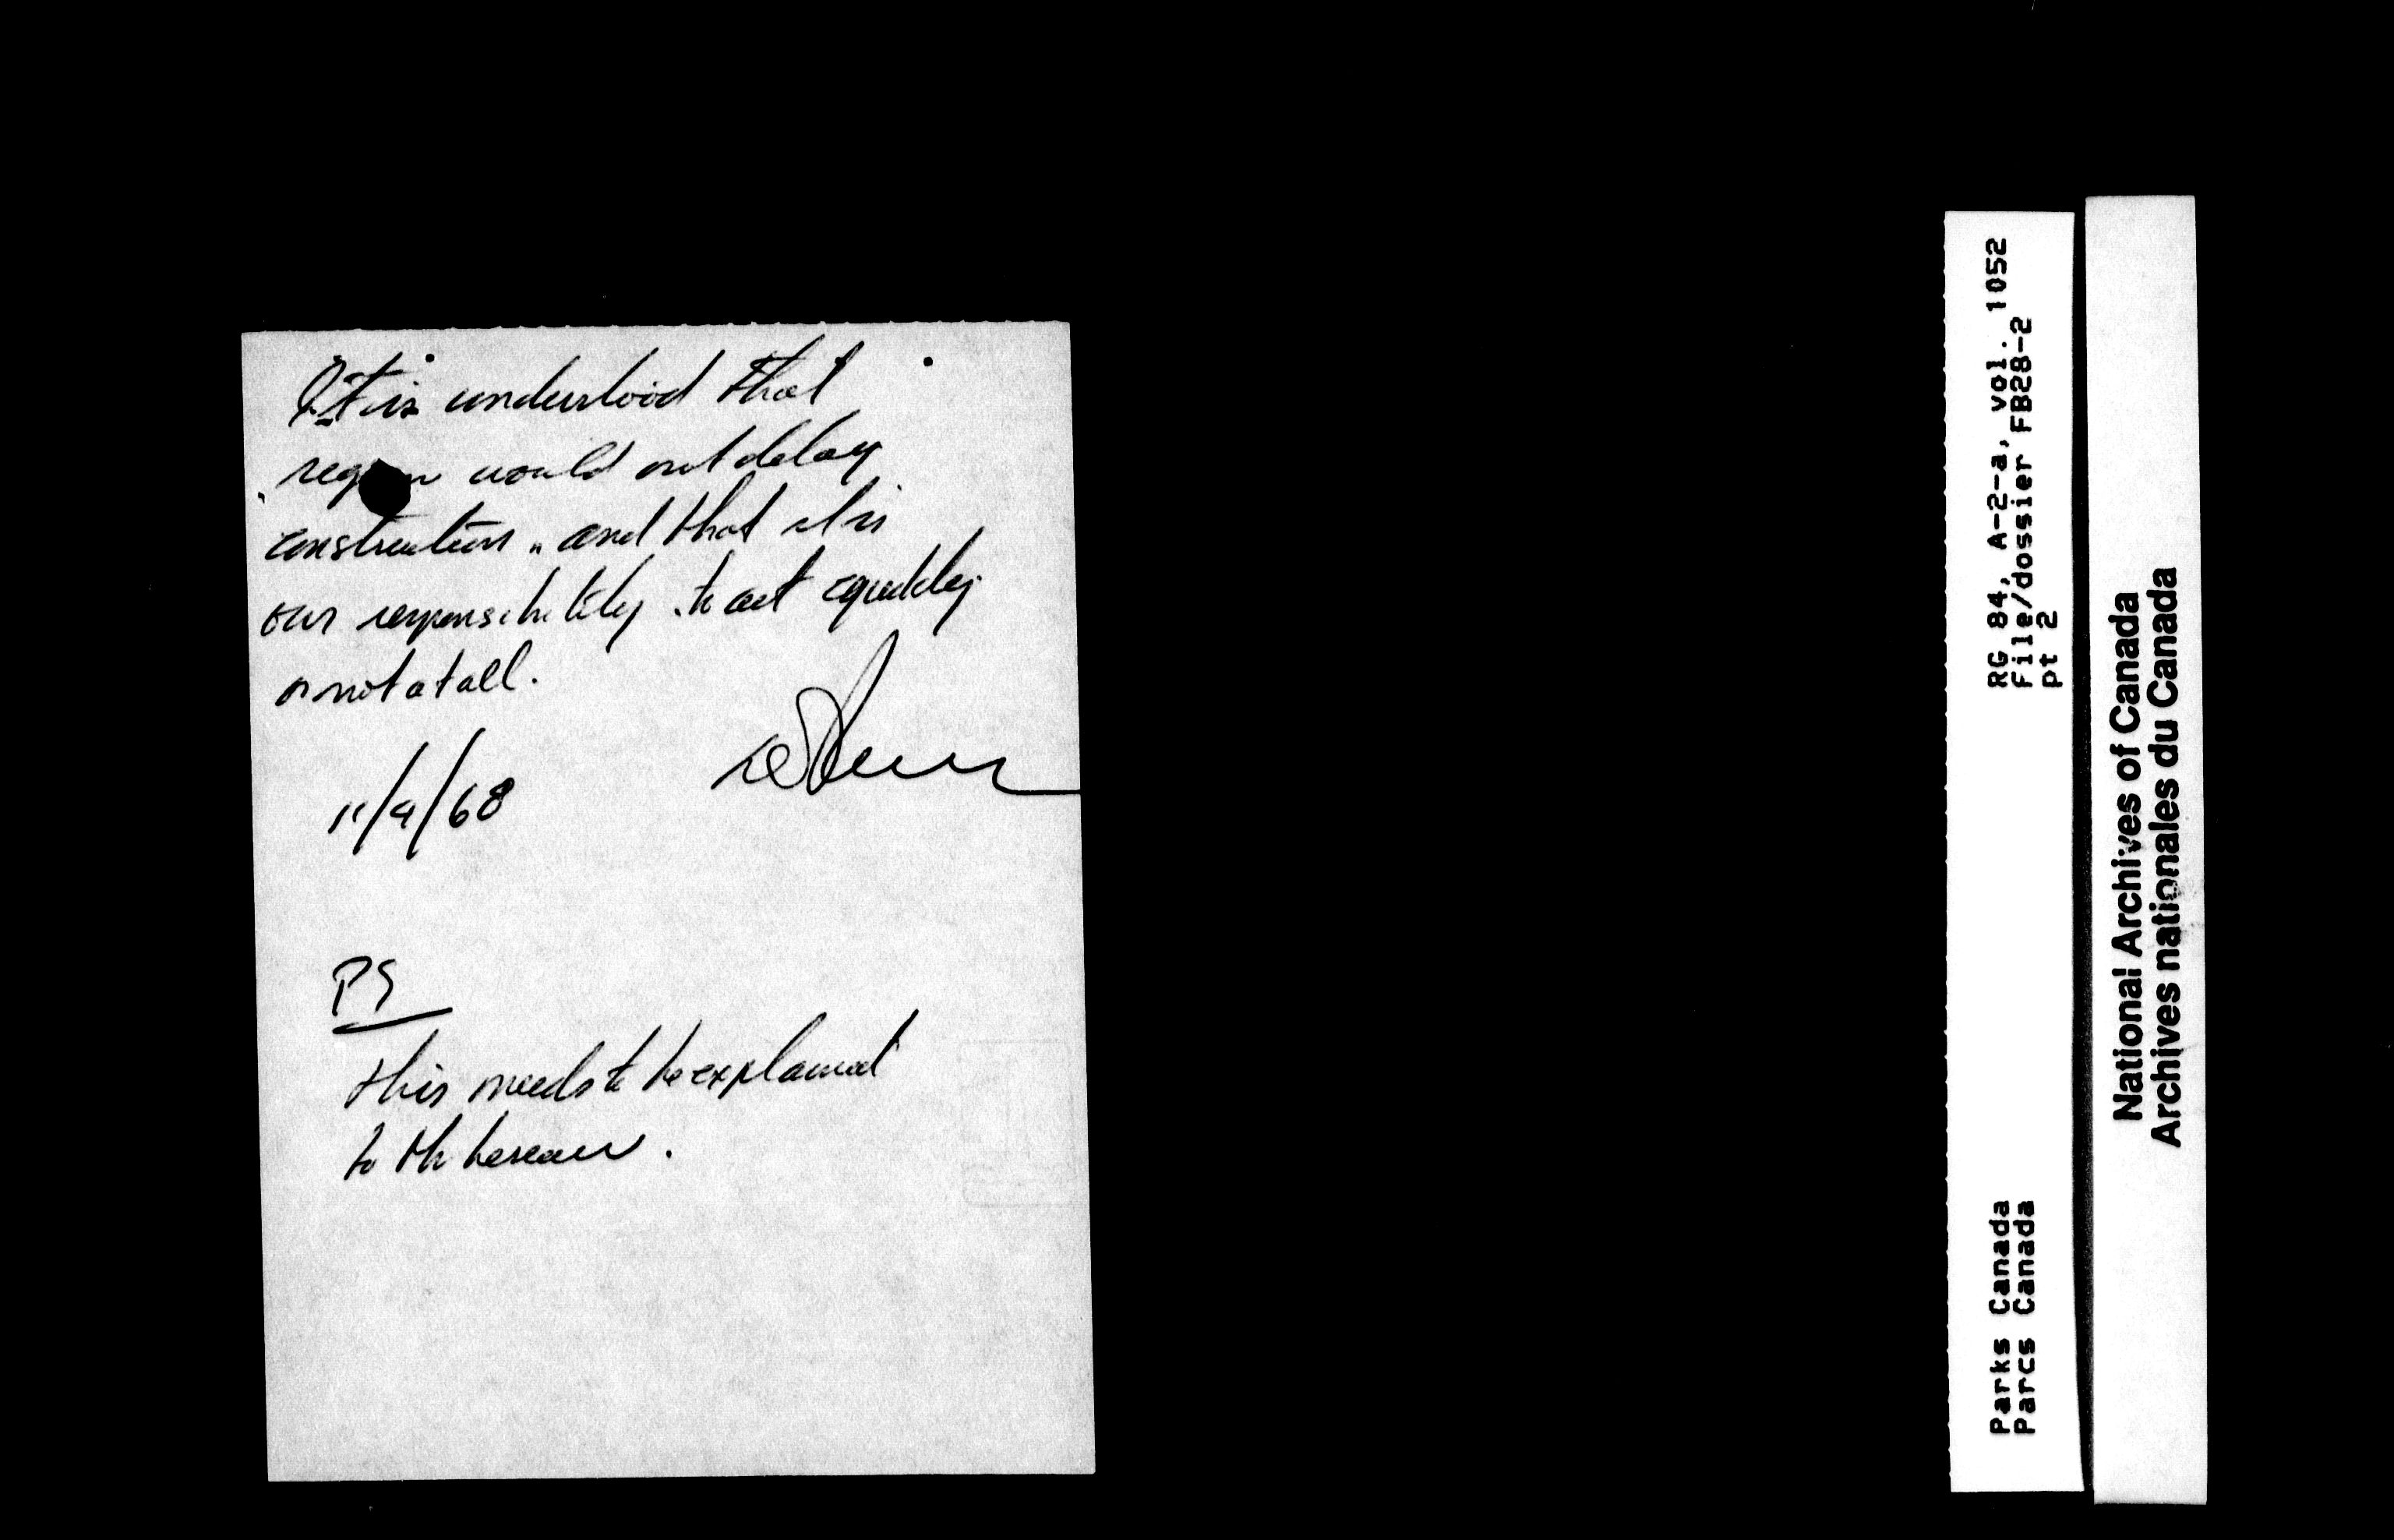 It is understood that
region would not delay
construction, and that it is
our responsibility to act quickly
or not at all.
11/9/68
PS
This needs to be explained
to the bureau.
RG 84, A-2-a, vol. 1052
File/dossier FB28-2
pt 2
Parks Canada
Parcs Canada
National Archives of Canada
Archives nationales du Canada